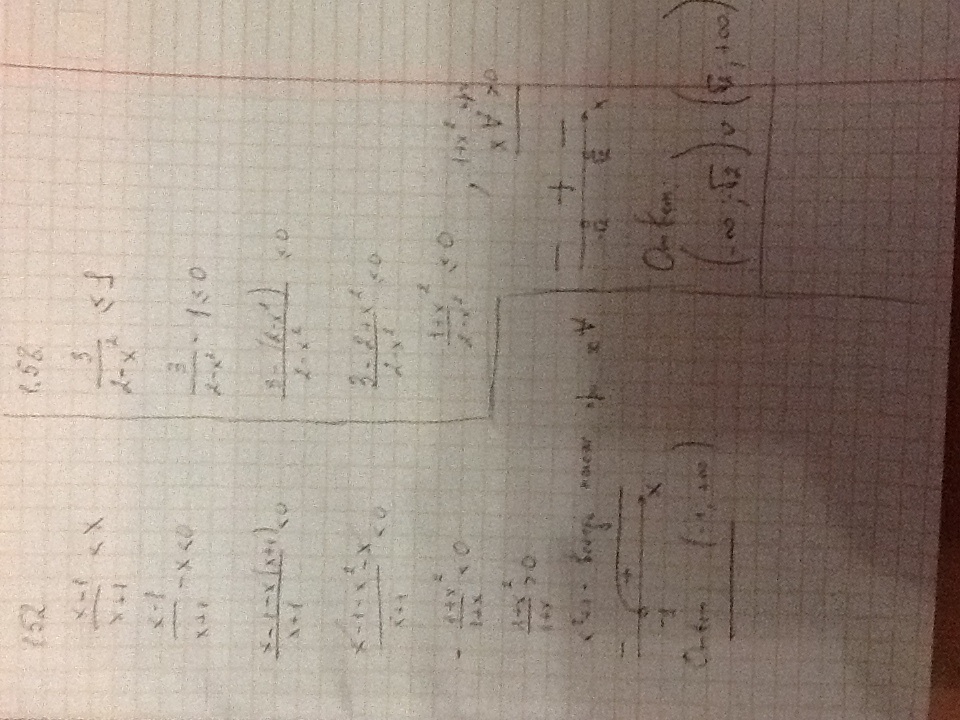 152
\frac{x-1}{x+1} < x
\frac{x-1}{x+1} - x < 0
\frac{x-1-x(x+1)}{x+1} < 0
\frac{x-1-x^2-x}{x+1} < 0
-\frac{1+x^2}{1+x} < 0
\frac{1+x^2}{1+x} > 0
x^2+1 - всегда
- +
-1 x
Ответ (-1, +∞)
152
\frac{3}{2-x^2} ≤ 1
\frac{3}{2-x^2} - 1 ≤ 0
\frac{3-(2-x^2)}{2-x^2} ≤ 0
\frac{3-2+x^2}{2-x^2} ≤ 0
\frac{1+x^2}{2-x^2} ≤ 0 , 1+x^2 > 0 при ∀ x
- + -
-√2 √2 x
Ответ:
(-∞; -√2) ∪ (√2; +∞)